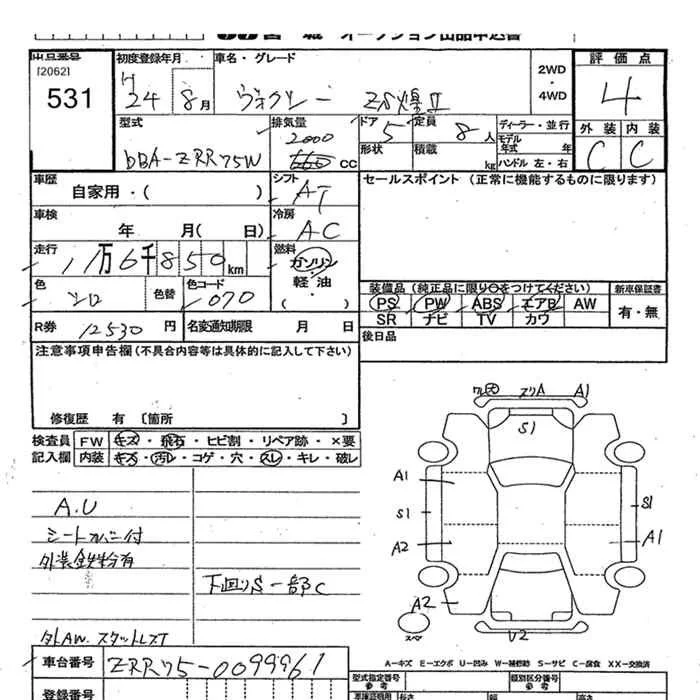 オークション出品申込書
出品番号 初度登録年月 車名・グレード 評価点
[2062]
531
H24 8月 ヴォクシー ZS煌Ⅱ 2WD・4WD 4
型式 排気量 ドア 定員 ディーラー・並行 外装 内装
DBA-ZRR75W 2000 CC 5 8人 モデル年式 年 C C
形状 積載 kg ハンドル 左・右
車歴 シフト セールスポイント (正常に機能するものに限ります)
自家用・( ) AT
車検 冷房
年 月( 日) AC
走行 燃料
11万6千850km ガソリン・軽油・( )
色 色替 色コード 装備品 (純正品に限り○をつけてください) 新車保証書
シロ 070 PS PW ABS エアB AW 有・無
SR ナビ TV カワ
R券 12530円 名変通知期限 月 日 後日品
注意事項申告欄 (不具合内容等は具体的に記入して下さい)
修復歴 有 〔箇所 〕
検査員 FW キズ・飛石・ヒビ割・リペア跡・×要
記入欄 内装 キズ・汚レ・コゲ・穴・スレ・キレ・破レ
A1
S1
A1
S1
S1
A2
A1
A2
V2
スペア
A.U
シートカバー付
外装鉄粉有
下回りS一部C
外AW. スタットレスT
A-キズ E-エクボ U-凹み W-補修跡 S-サビ C-腐食 XX-交換済
車台番号 ZRR75-0099961 型式指定番号 参考 類別区分番号 参考
登録番号 車検証明用 参考 長さ 幅 高さ